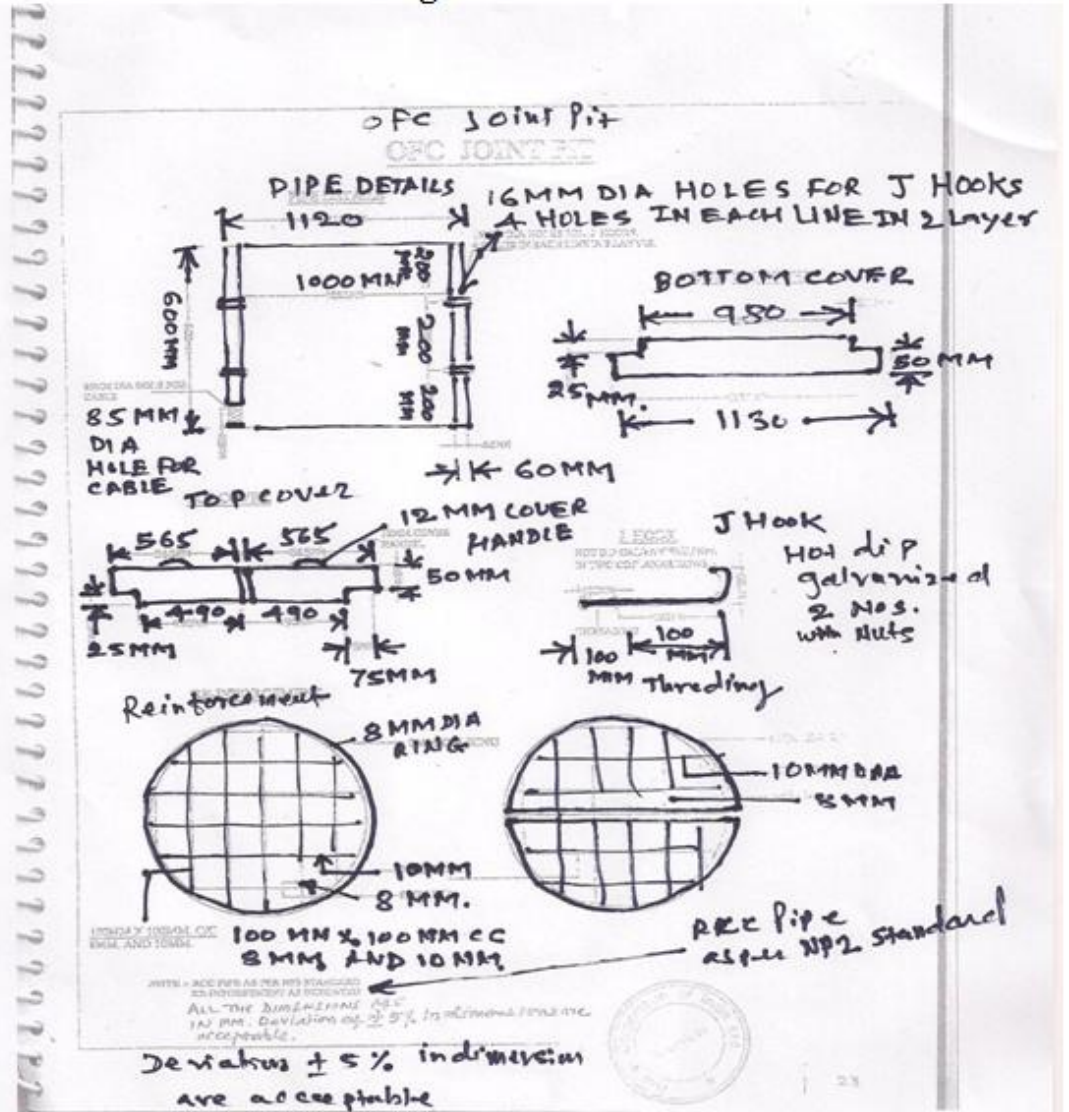 OFC Joint Pit
OFC JOINT PIT
PIPE DETAILS
16MM DIA HOLES FOR J HOOKS
4 HOLES IN EACH LINE IN 2 Layer
1120
1000MM
200 MM
200 MM
200 MM
600MM
85MM
DIA
HOLE FOR
CABLE
60MM
BOTTOM COVER
980
50MM
25MM.
1130
TOP COVER
12MM COVER
HANDLE
565
565
50MM
490
490
25MM
75MM
J Hook
Hot dip
galvanized
2 Nos.
with Nuts
100
MM
100
MM
Threding
Reinforcement
8MM DIA
RING
10MM DIA
8MM
10MM
8MM.
100 MM X 100MM CC
8MM AND 10MM
RCC Pipe
as per NP2 Standard
NOTE - RCC PIPE AS PER NP2 STANDARD
ALL THE DIMENSIONS ARE
IN MM. Deviation of ± 5% in dimensions are
acceptable.
Deviation ± 5% in dimersion
are acceptable
23